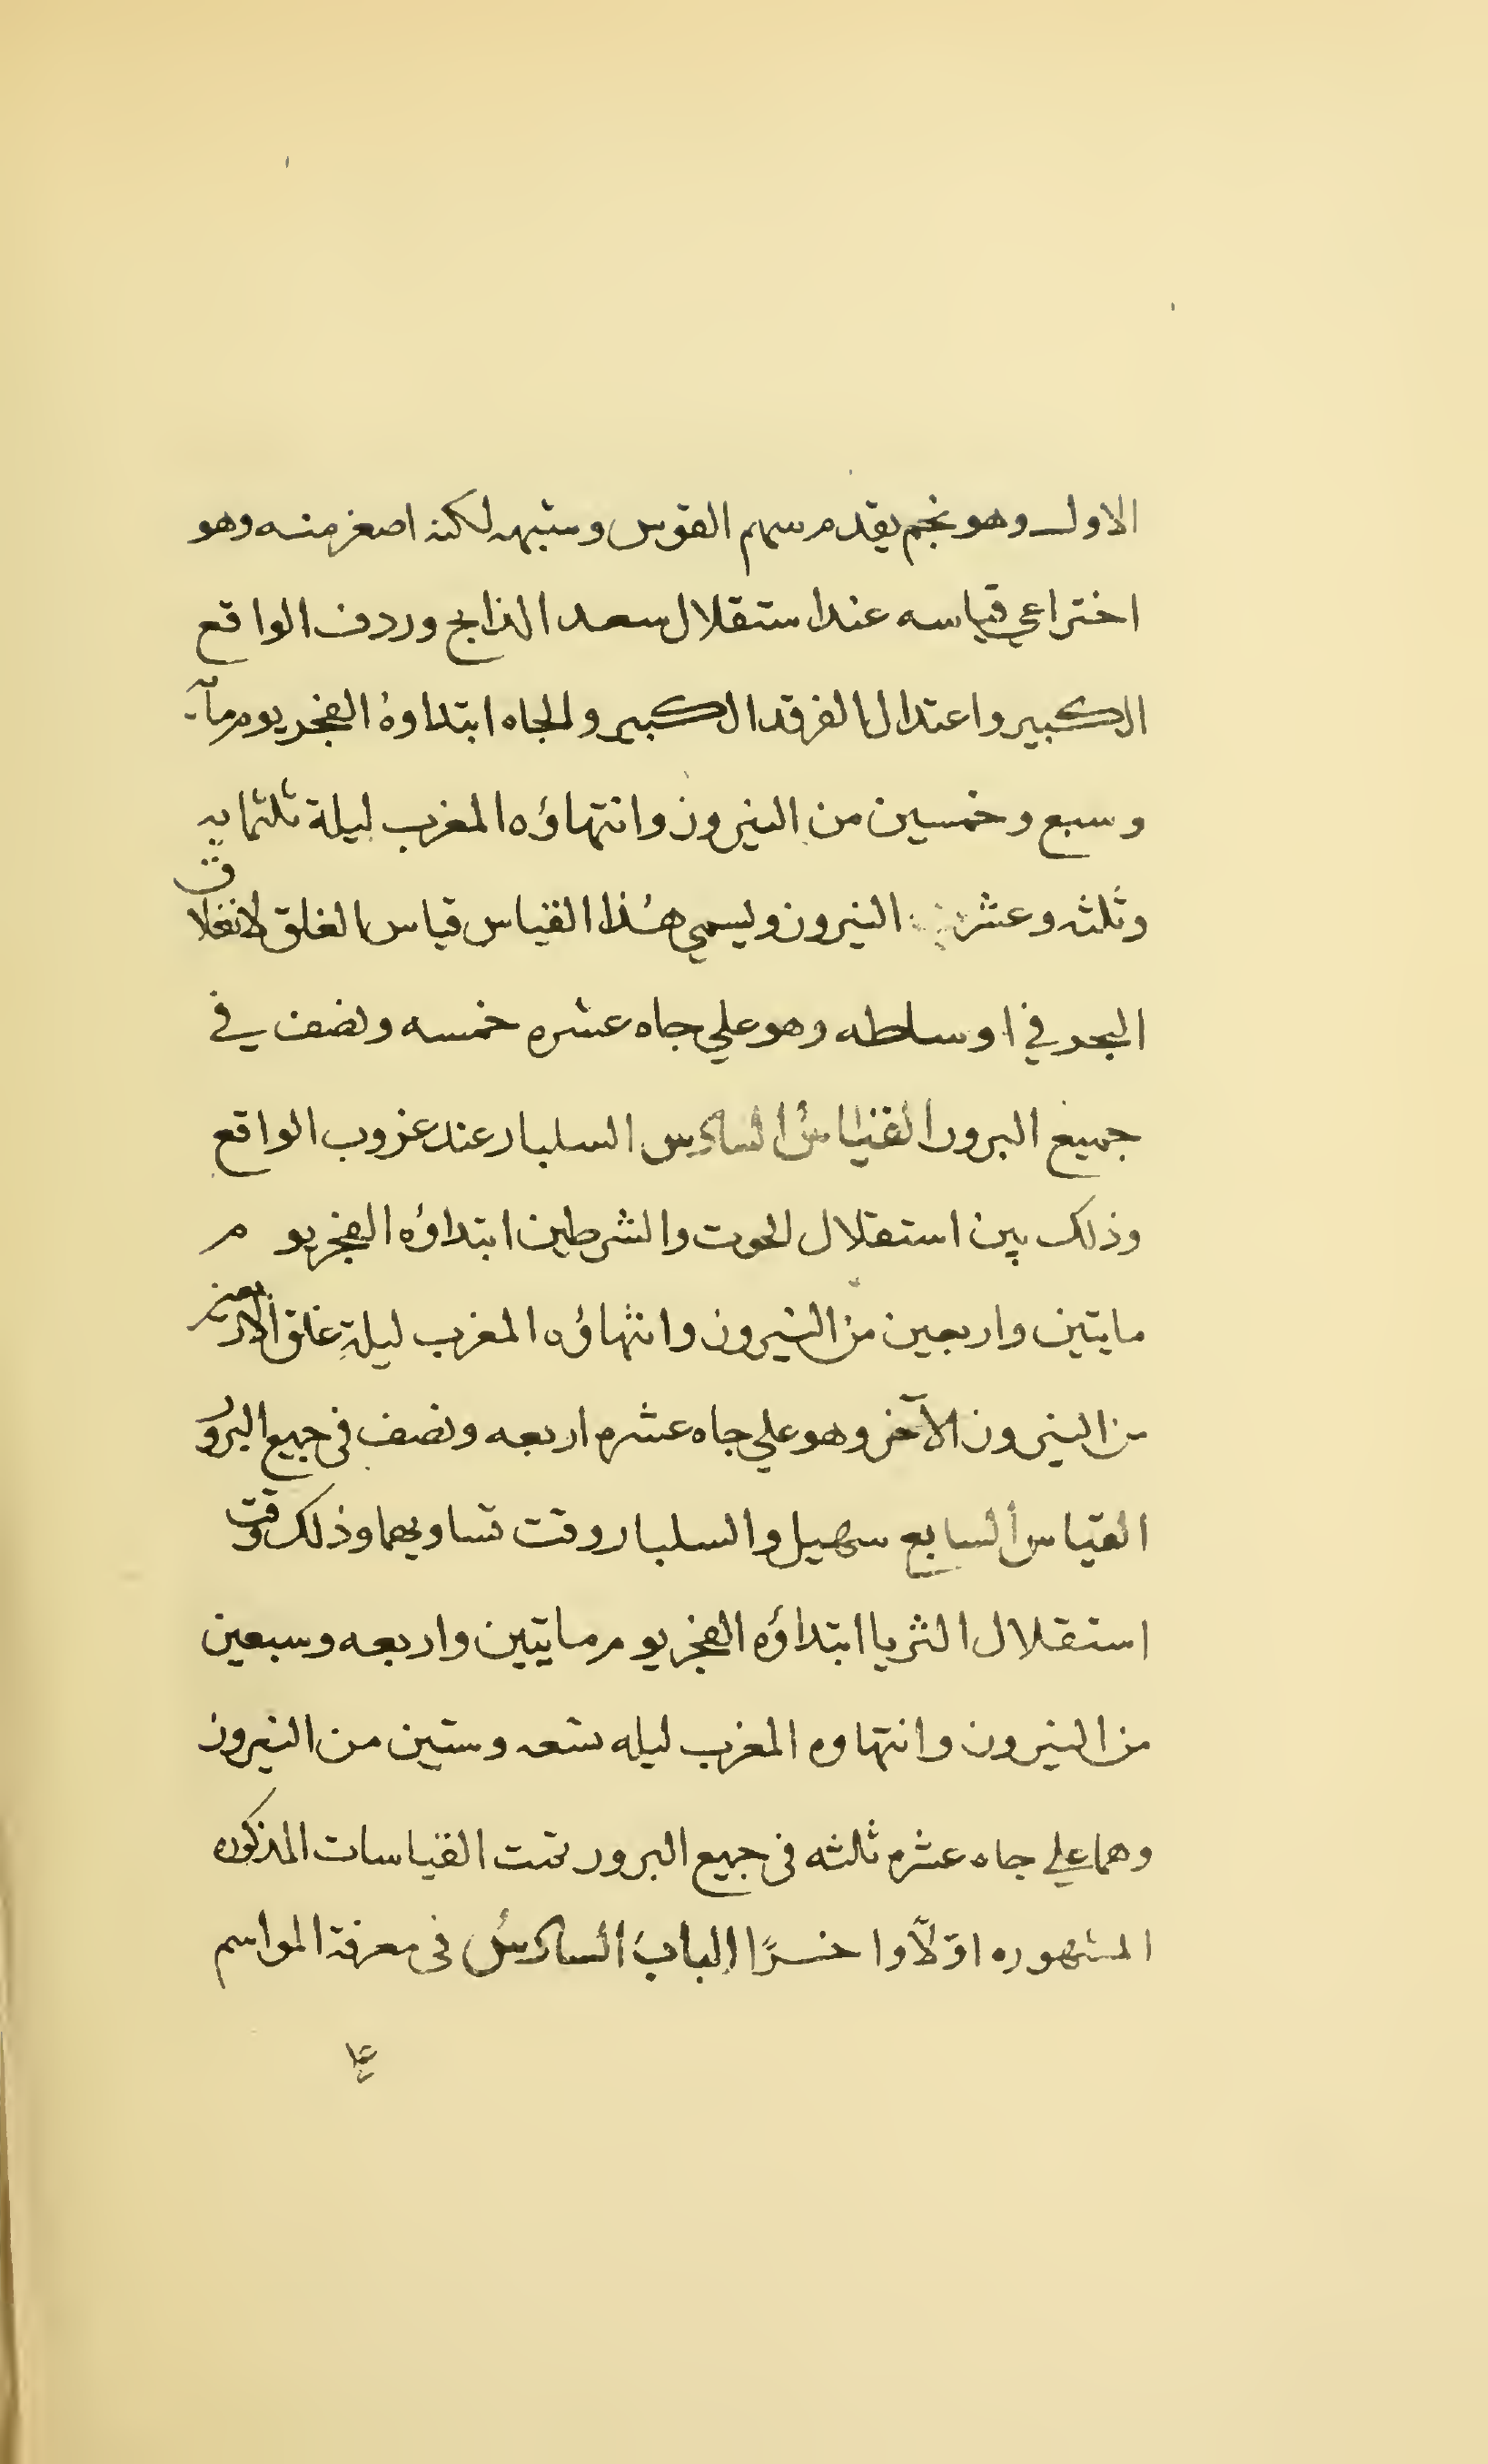 الاول وهو نجم يقدم سهم القوس وشبهه لكنه اصغر منه وهو
اختراعي قياسه عند استقلال سعد الذابح وردف الواقع
الكبير واعتدال الفرقد الكبير والجاه ابتداوهُ الفجر يوم مآ
وسبع وخمسين من النيروز وانتهاؤه المغرب ليلة ثلثمايه
وثلثه وعشرين النيروز ويسمي هذا القياس قياس الغلق لانغلاق
البحر في اوساطه وهو علي جاه عشره خمسه ونصف في
جميع البرور القياسُ السادس السلبار عند غروب الواقع
وذلك بين استقلال الحوت والشرطين ابتداؤه الفجر يوم
مايتين واربعين من النيروز وانتهاؤه المغرب ليلةِ غلق الاربعين
من النيروز الآخر وهو علي جاه عشره اربعه ونصف في جميع البرور
القياس السابع سهيل والسلبار وقت تساويهما وذلك وقت
استقلال الثريا ابتداؤه الفجر يوم مايتين واربعه وسبعين
من النيروز وانتهاوه المغرب ليله تسعه وستين من النيروز
وهما علي جاه عشره ثلثه في جميع البرور تمت القياسات المذكوره
المشهوره اوّلاً واخرًا البابُ السادسُ في معرفة المواسم